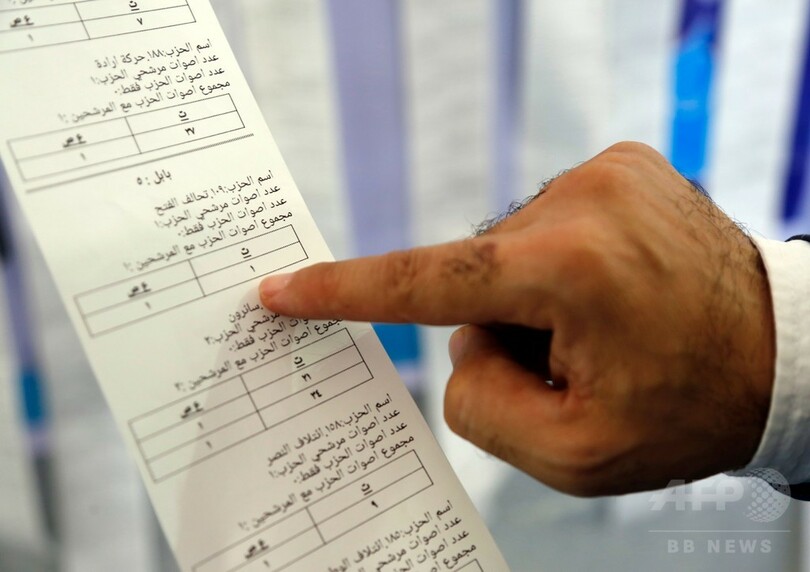 ت
ع ص
٧
١
اسم الحزب:١٨٨.حركة ارادة
عدد اصوات مرشحي الحزب:١
عدد اصوات الحزب فقط:٠
مجموع اصوات الحزب مع المرشحين :١
ت
ع ص
٣٧
١
بابل : ٥
اسم الحزب:١٠٩.تحالف الفتح
عدد اصوات مرشحي الحزب:١
عدد اصوات الحزب فقط:٠
مجموع اصوات الحزب مع المرشحين :١
ت
ع ص
١
١
سائرون
مرشحي الحزب:٢
اصوات الحزب فقط:٠
مجموع اصوات الحزب مع المرشحين :٢
ت
ع ص
٢٦
١
٣٤
١
اسم الحزب:١٥٨.ائتلاف النصر
عدد اصوات مرشحي الحزب:١
عدد اصوات الحزب فقط:٠
مجموع اصوات الحزب مع المرشحين :١
ت
ع ص
٩
١
اسم الحزب:١٨٥.ائتلاف
عدد اصوات مرشحي
عدد اصوات
مجموع
AFP
BB NEWS